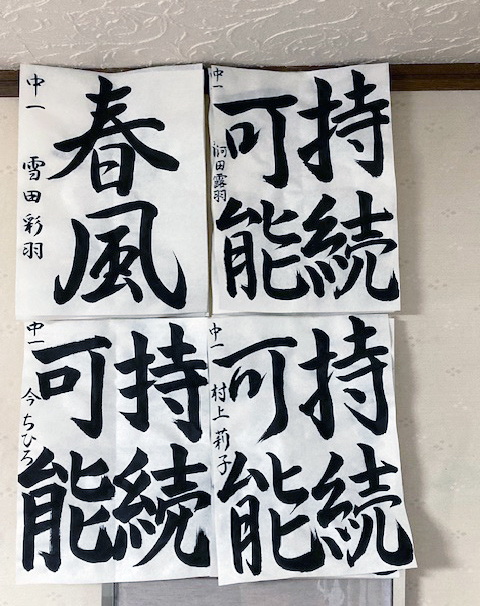 春風
中一 雪田彩羽
持続
可能
中一 河田露羽
持続
可能
中一 今ちひろ
持続
可能
中一 村上莉子